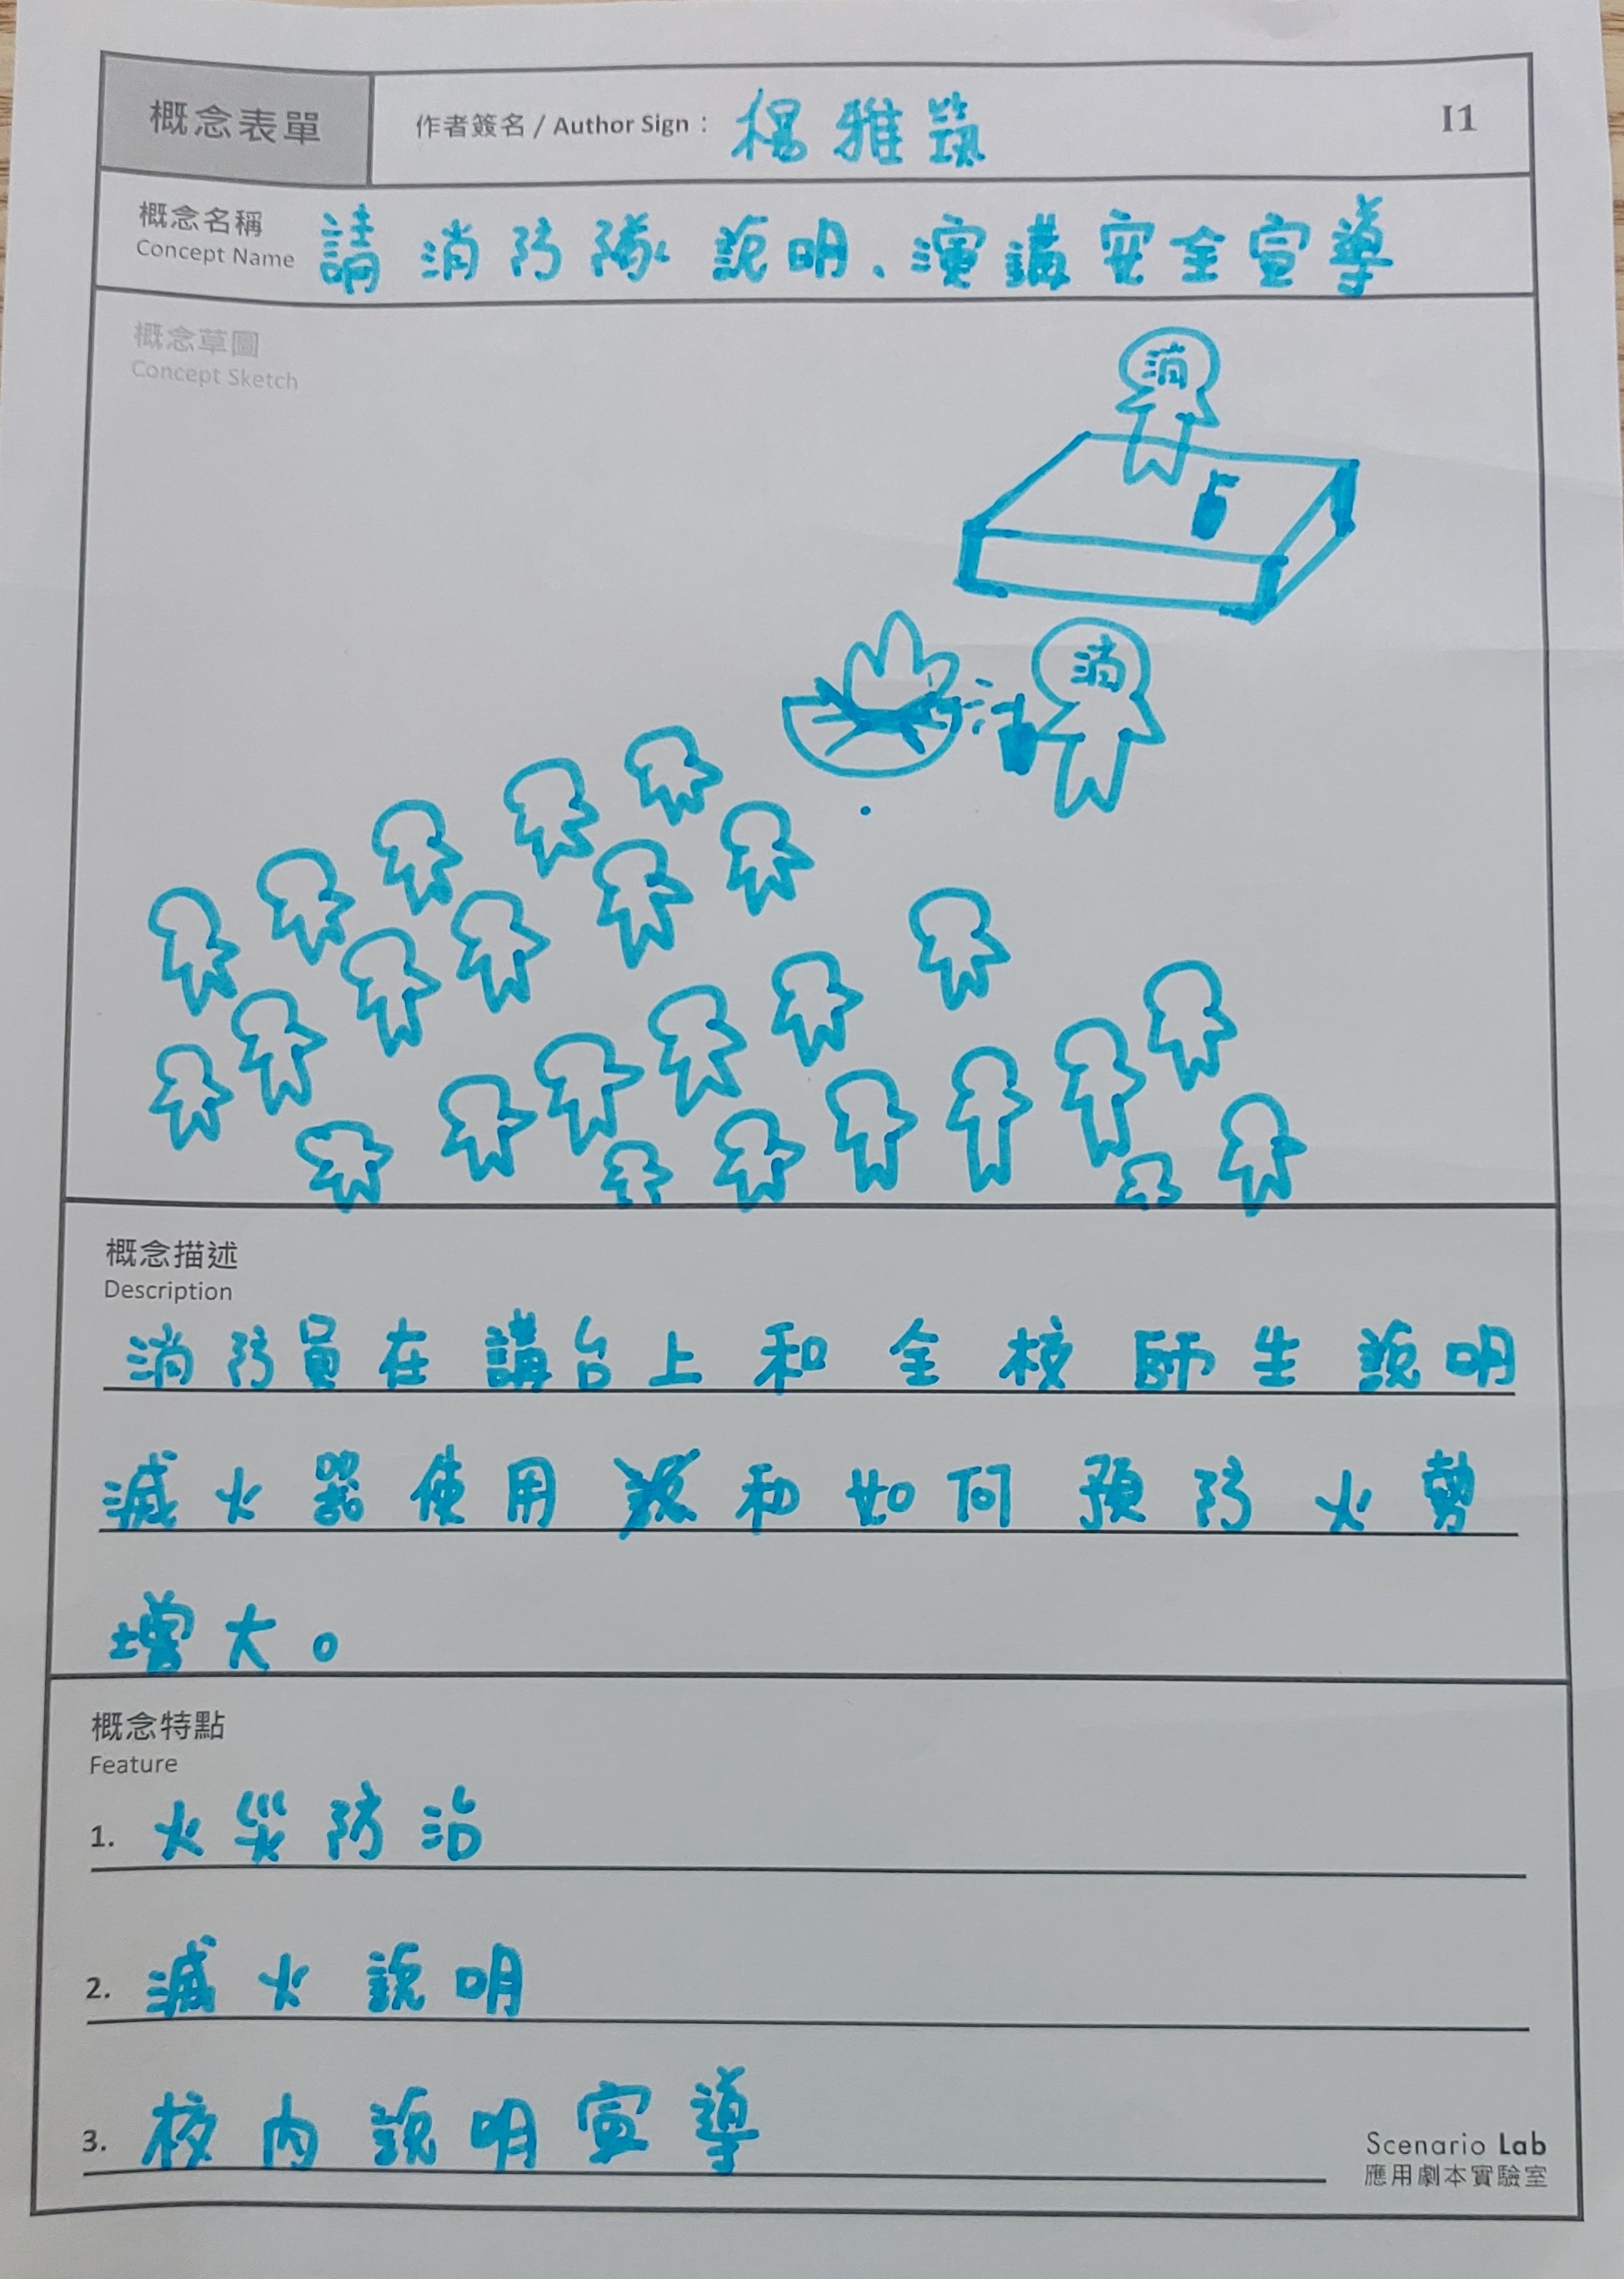 概念表單
作者簽名 / Author Sign： 楊雅筑
I1
概念名稱
Concept Name
請消防隊說明、演講安全宣導
概念草圖
Concept Sketch
消
消
概念描述
Description
消防員在講台上和全校師生說明
滅火器使用和如何預防火勢
增大。
概念特點
Feature
1. 火災防治
2. 滅火說明
3. 校內說明宣導
Scenario Lab
應用劇本實驗室